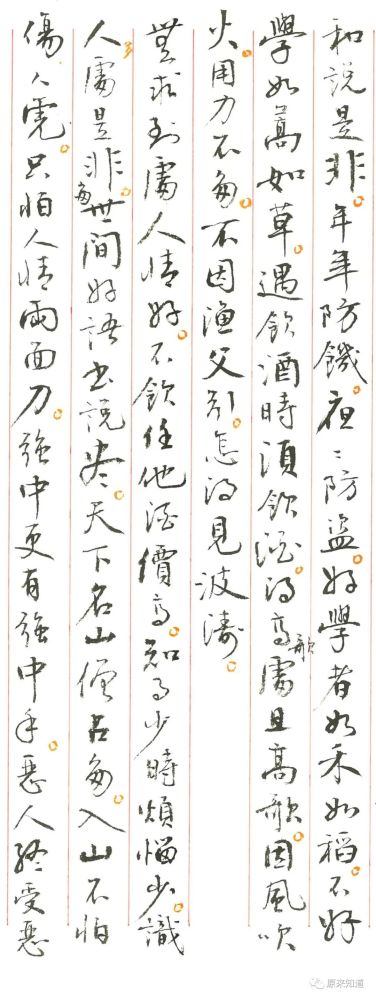 和說是非。年年防饑。夜〻防盜。好學者如禾如稻。不好
學如蒿如草。遇飲酒時須飲酒。得高歌處且高歌。因風吹
火。用力不多。不因漁父引。怎得見波濤。
無求到處人情好。不飲任他酒價高。知事少時煩惱少。識
人多處是非多。世間好語書說盡。天下名山僧占多。入山不怕
傷人虎。只怕人情兩面刀。強中更有強中手。惡人終受惡
原来知道